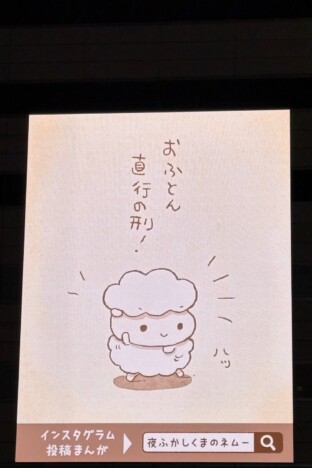 おふとん
直行の刑!
ハッ
インスタグラム
投稿まんが
夜ふかしくまのネムー